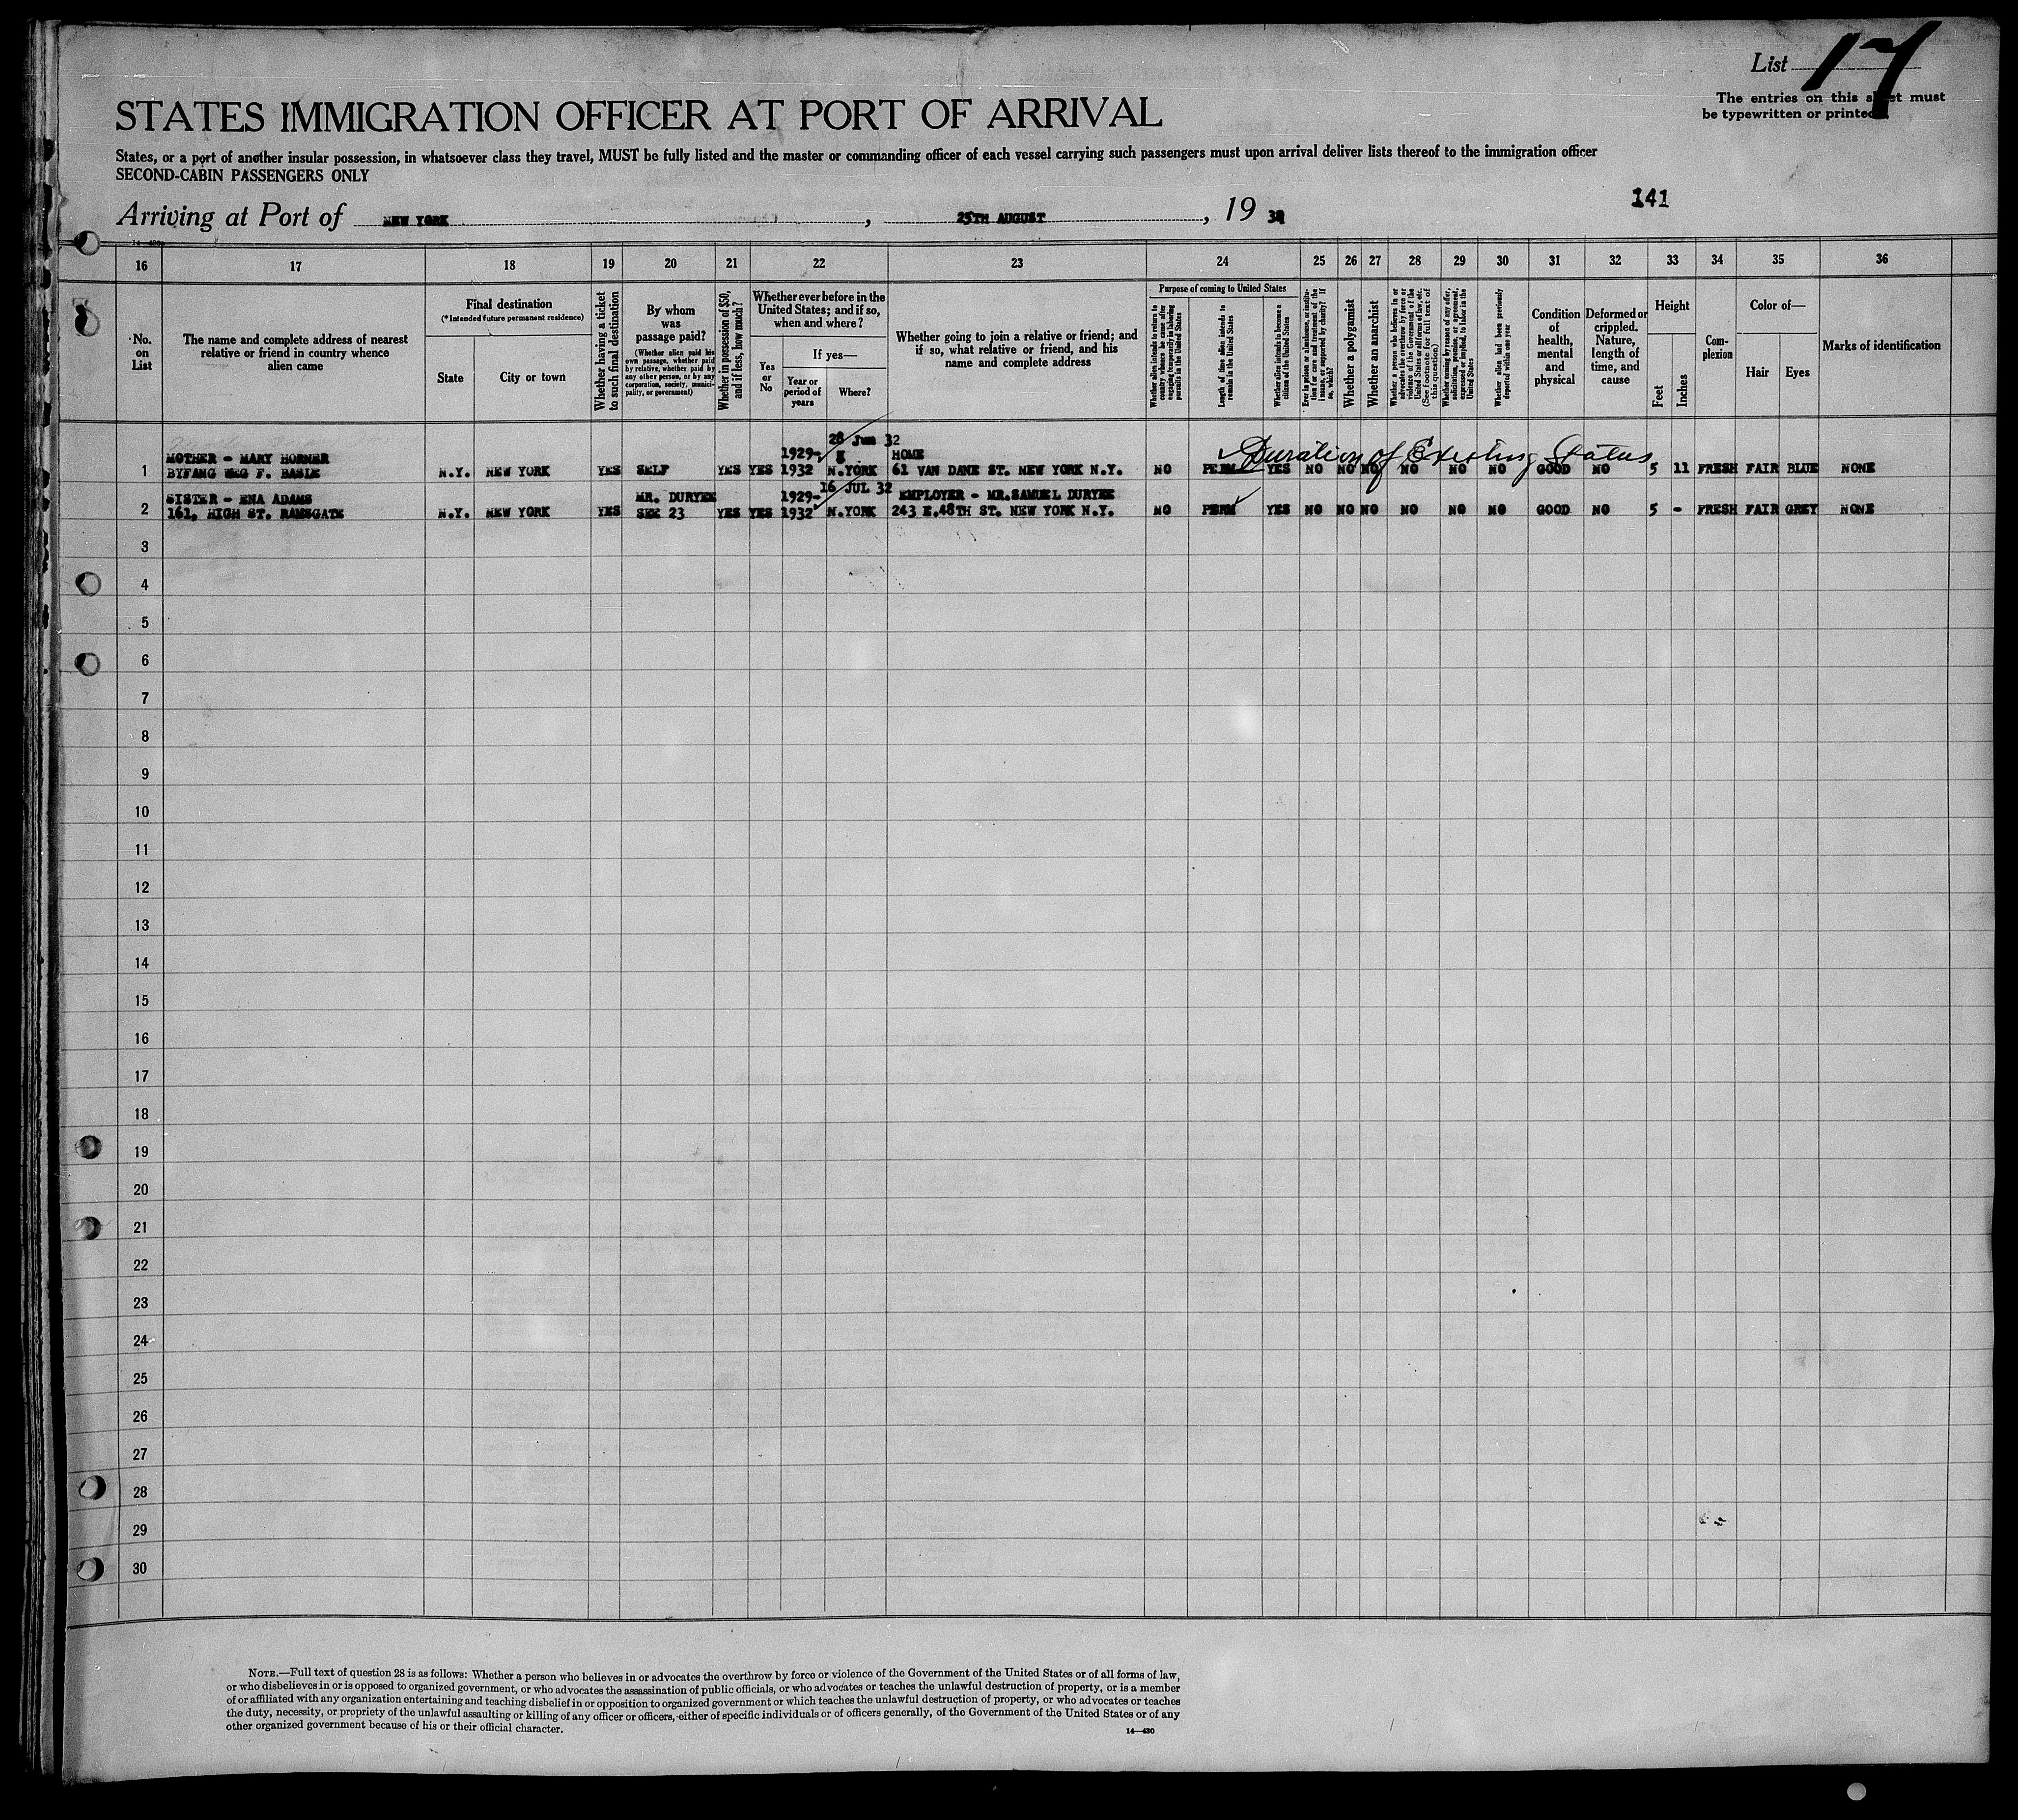 List 17
The entries on this sheet must
be typewritten or printed.
STATES IMMIGRATION OFFICER AT PORT OF ARRIVAL
States, or a port of another insular possession, in whatsoever class they travel, MUST be fully listed and the master or commanding officer of each vessel carrying such passengers must upon arrival deliver lists thereof to the immigration officer
SECOND-CABIN PASSENGERS ONLY
141
Arriving at Port of NEW YORK, 25TH AUGUST, 19 32
16 17 18 19 20 21 22 23 24 25 26 27 28 29 30 31 32 33 34 35 36
No.
on
List
The name and complete address of nearest
relative or friend in country whence
alien came
Final destination
(*Intended future permanent residence)
State
City or town
Whether having a ticket
to such final destination
By whom
was
passage paid?
(Whether alien paid his
own passage, whether paid
by relative, whether paid by
any other person, or by any
corporation, society, munici-
pality, or government)
Whether in possession of $50,
and if less, how much?
Whether ever before in the
United States; and if so,
when and where?
Yes
or
No
If yes—
Year or
period of
years
Where?
Whether going to join a relative or friend; and
if so, what relative or friend, and his
name and complete address
Purpose of coming to United States
Whether alien intends to return to
country whence he came after
engaging temporarily in laboring
pursuits in the United States
Length of time alien intends to
remain in the United States
Whether alien intends to become a
citizen of the United States
Ever in prison or almshouse, or institu-
tion for care and treatment of the
insane, or supported by charity? If
so, which?
Whether a polygamist
Whether an anarchist
Whether a person who believes in or
advocates the overthrow by force or
violence of the Government of the
United States or all forms of law, etc.
(See footnote for full text of
this question)
Whether coming by reason of any offer,
solicitation, promise, or agreement,
expressed or implied, to labor in the
United States
Whether alien had been previously
deported within one year
Condition
of
health,
mental
and
physical
Deformed or
crippled.
Nature,
length of
time, and
cause
Height
Feet
Inches
Com-
plexion
Color of—
Hair
Eyes
Marks of identification
28 Jun 32
Duration of Existing Status
MOTHER - MARY HORNER 1929- HOME
1 BYFANG WEG F. BASLE N.Y. NEW YORK YES SELF YES YES 1932 N.YORK 61 VAN DANE ST. NEW YORK N.Y. NO PERM YES NO NO NO NO NO NO GOOD NO 5 11 FRESH FAIR BLUE NONE
SISTER - ENA ADAMS MR. DURYEE 1929- 16 JUL 32 EMPLOYER - MR.SAMUEL DURYEE
2 161, HIGH ST. RAMSGATE N.Y. NEW YORK YES SEE 23 YES YES 1932 N.YORK 243 E.48TH ST. NEW YORK N.Y. NO PERM YES NO NO NO NO NO NO GOOD NO 5 - FRESH FAIR GREY NONE
3
4
5
6
7
8
9
10
11
12
13
14
15
16
17
18
19
20
21
22
23
24
25
26
27
28
29
30
NOTE.—Full text of question 28 is as follows: Whether a person who believes in or advocates the overthrow by force or violence of the Government of the United States or of all forms of law,
or who disbelieves in or is opposed to organized government, or who advocates the assassination of public officials, or who advocates or teaches the unlawful destruction of property, or is a member
of or affiliated with any organization entertaining and teaching disbelief in or opposition to organized government or which teaches the unlawful destruction of property, or who advocates or teaches
the duty, necessity, or propriety of the unlawful assaulting or killing of any officer or officers, either of specific individuals or of officers generally, of the Government of the United States or of any
other organized government because of his or their official character.
14—430